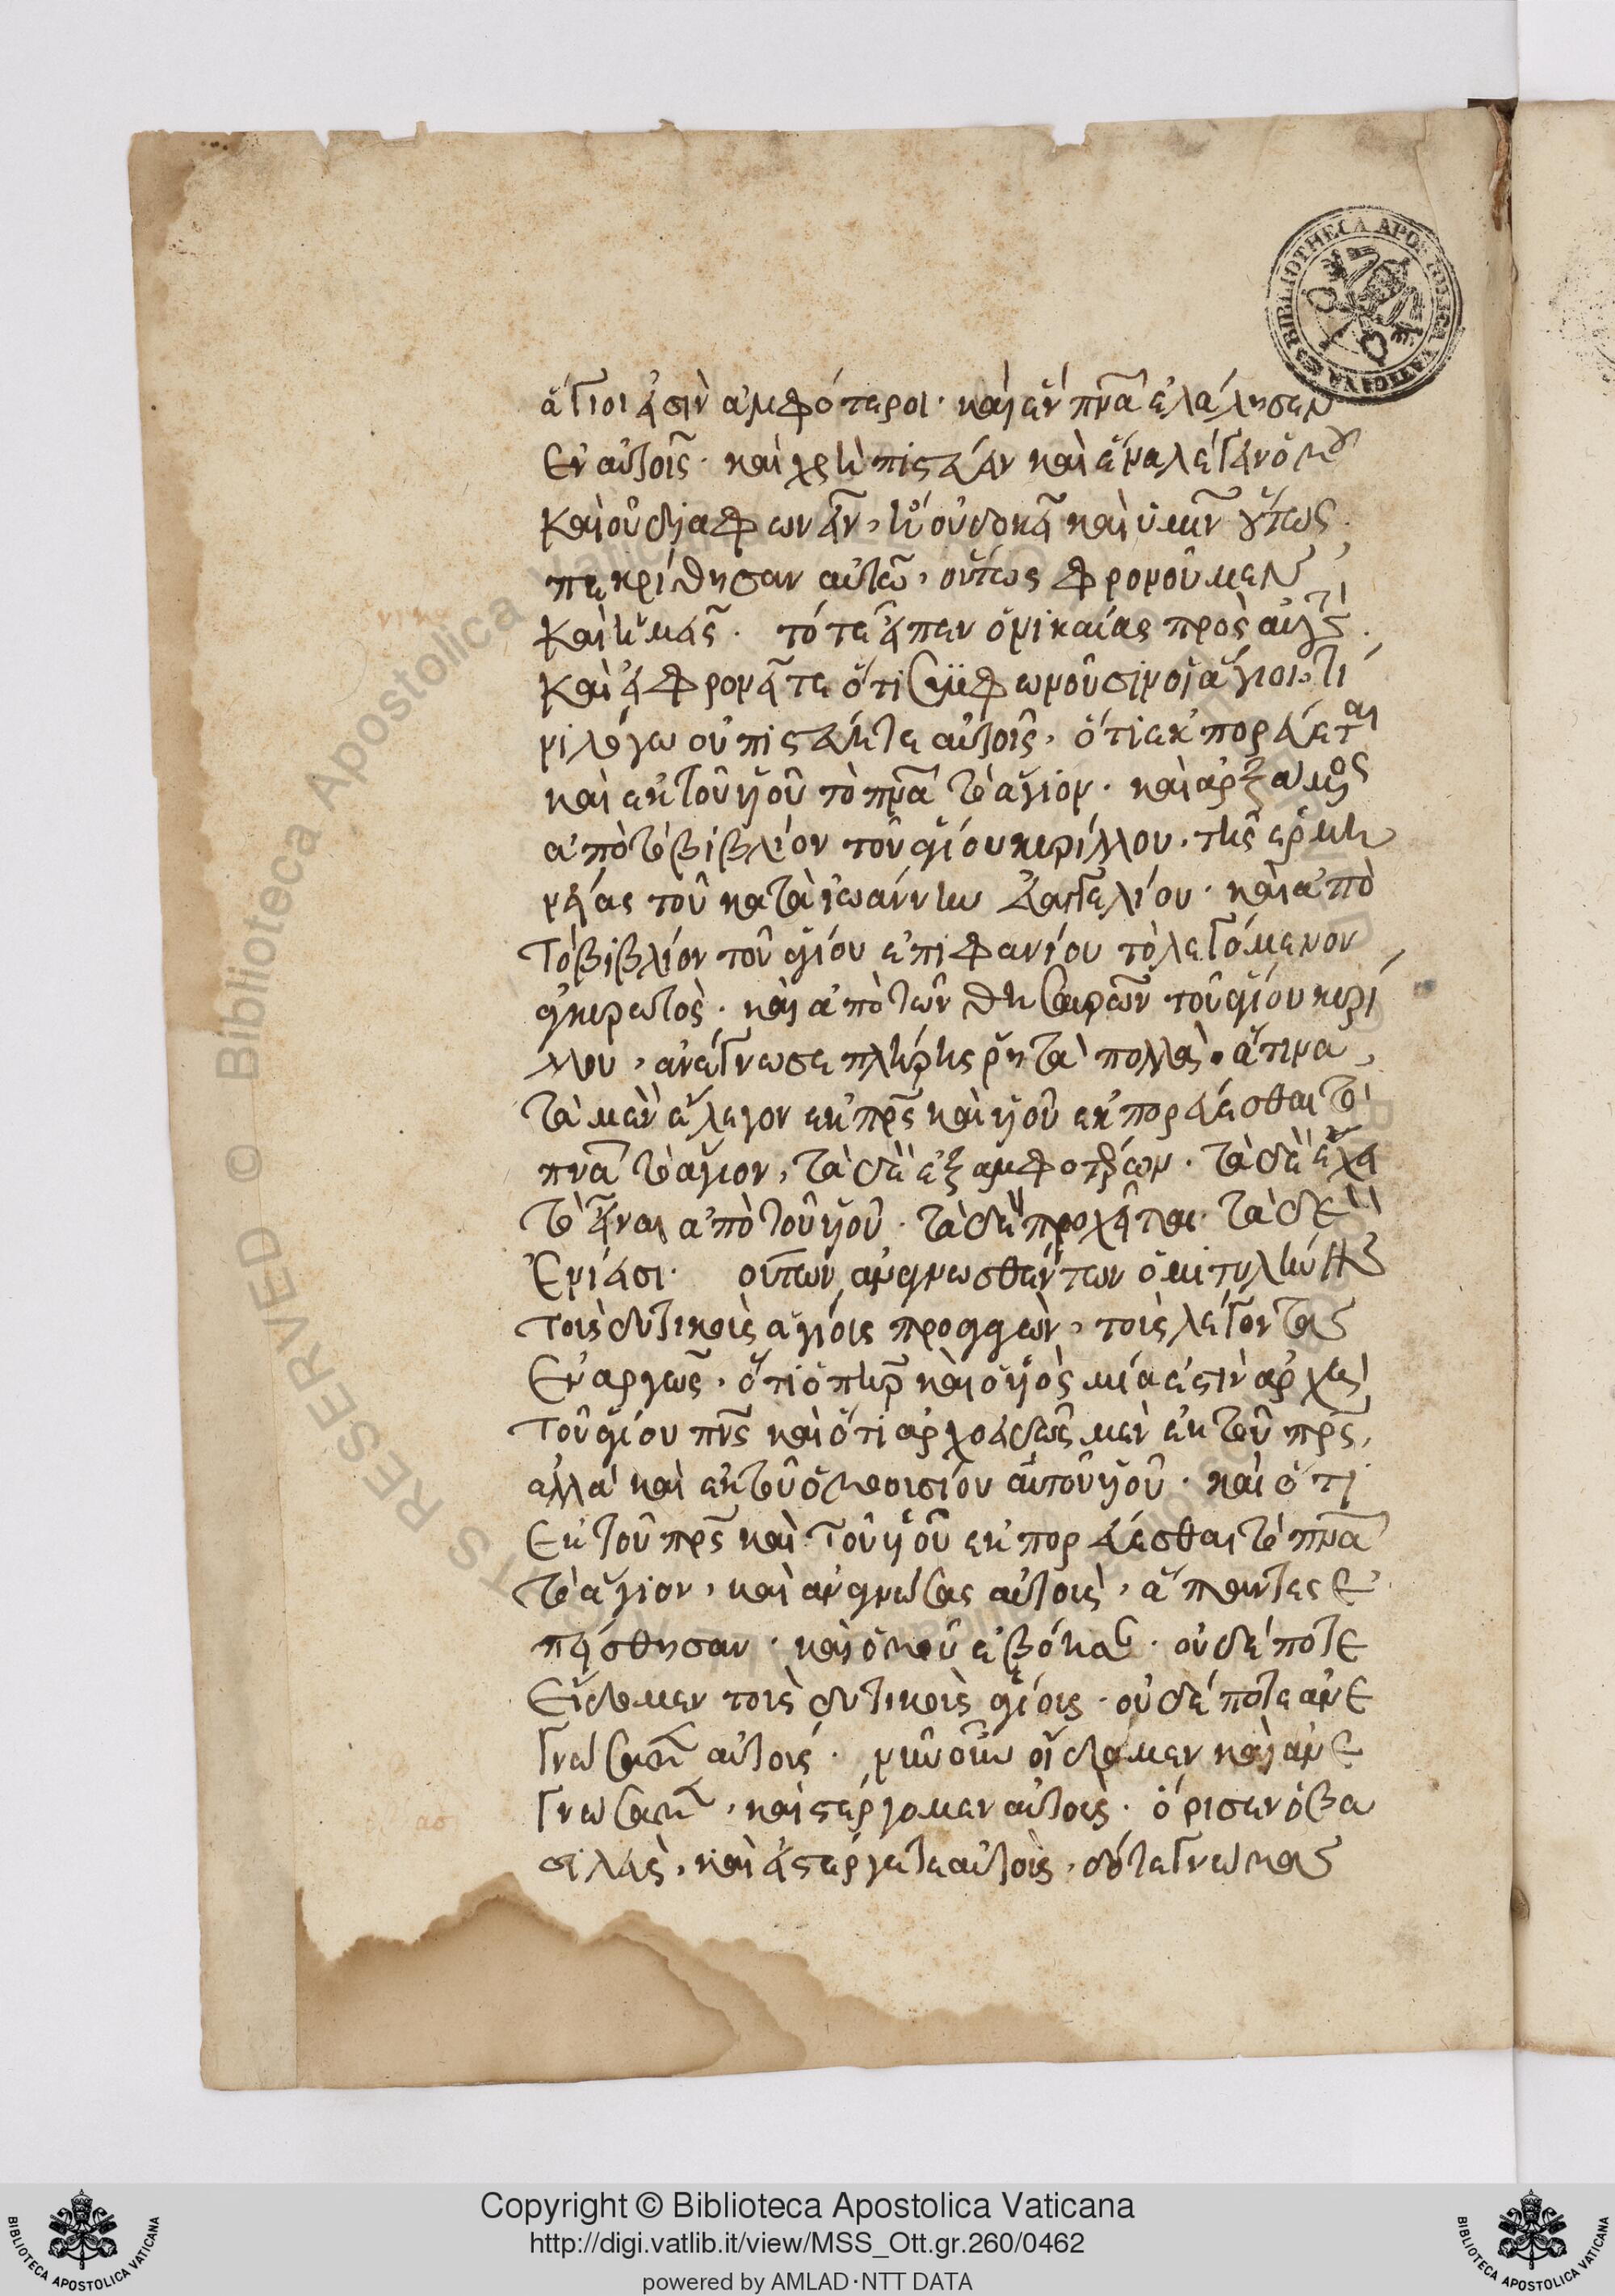 ἅγιοι εἰσὶν ἀμφότεροι· καὶ ἓν πνᾶ ἐλάλησεν
ἐν αὐτοῖς· καὶ χρὴ πιστεύειν καὶ
καὶ οὐ διαφωνεῖν, εἰ οὐ δοκεῖ καὶ ὑμῖν οὕτως
πεκρίθησαν αὐτῶ, οὕτως φρονοῦμεν
καὶ ἡμεῖς. τότε εἶπεν ὁ νικαίας πρὸς αὐτούς.
καὶ εἰ φρονεῖτε ὅτι συμφωνοῦσιν οἱ ἅγιοι, τί
νι λόγω οὐ πιστεύετε αὐτοῖς, ὅτι ἐκπορεύεται
καὶ ἐκ τοῦ υἱοῦ τὸ πνᾶ τὸ ἅγιον· καὶ ἀρξάμενος
ἀπὸ τὸ βιβλίον τοῦ ἁγίου κυρίλλου, τῆς ἑρμη
νείας τοῦ κατὰ ἰωάννην εὐαγγελίου· καὶ ἀπὸ
τὸ βιβλίον τοῦ ἁγίου ἐπιφανίου τὸ λεγόμενον
ἀγκυρωτὸς· καὶ ἀπὸ τῶν θησαυρῶν τοῦ ἁγίου κυρί
λλου, ἀνέγνωσε πλήρης ῥητὰ πολλὰ· ἅτινα
τὰ μὲν ἔλεγον ἐκ πρς καὶ υἱοῦ ἐκπορεύεσθαι τὸ
πνᾶ τὸ ἅγιον, τὰ δὲ ἐξ ἀμφοτέρων. τὰ δὲ ἔχει
τὸ εἶναι ἀπὸ τοῦ υἱοῦ· τὰ δὲ προχεῖται· τὰ δὲ
ἐνιεῖσι· οὕτων ἀναγνωσθέντων ὁ μιτυλήνης
τοῖς δυτικοῖς ἁγίοις προαγαγὼν, τοῖς λέγοντας
ἐναργῶς, ὅτι ὁ πηρ καὶ ὁ υἱὸς μία ἐστὶν ἀρχὴ
τοῦ ἁγίου πνς καὶ ὅτι ἀρχοειδῶς μὲν ἐκ τοῦ πρς,
ἀλλὰ καὶ ἐκ τοῦ ὁμοουσίου αὐτοῦ υἱοῦ· καὶ ὅτι
ἐκ τοῦ πρς καὶ τοῦ υἱοῦ ἐκπορεύεσθαι τὸ πνᾶ
τὸ ἅγιον, καὶ ἀναγνώσας αὐτοὶς, ἅπαντες ἐ
πείσθησαν· καὶ ὁμοῦ ἐβόησαν· οὐδέποτε
εἴδομεν τοὶς δυτικοὶς ἁγίοις· οὐδέποτε ἀνε
γνώσαμεν αὐτοὶς· νῦν οὖν οἴδαμεν καὶ ἀνε
γνώσαμεν, καὶ στέργομεν αὐτοὶς· ὅρισεν ὁ βα
σιλεὺς, καὶ εἰ στέργετε αὐτοὶς, δότε γνώμας
BIBLIOTHECA APOSTOLICA VATICANA
© Biblioteca Apostolica Vaticana
Copyright © Biblioteca Apostolica Vaticana
http://digi.vatlib.it/view/MSS_Ott.gr.260/0462
powered by AMLAD·NTT DATA
BIBLIOTECA APOSTOLICA VATICANA
BIBLIOTECA APOSTOLICA VATICANA